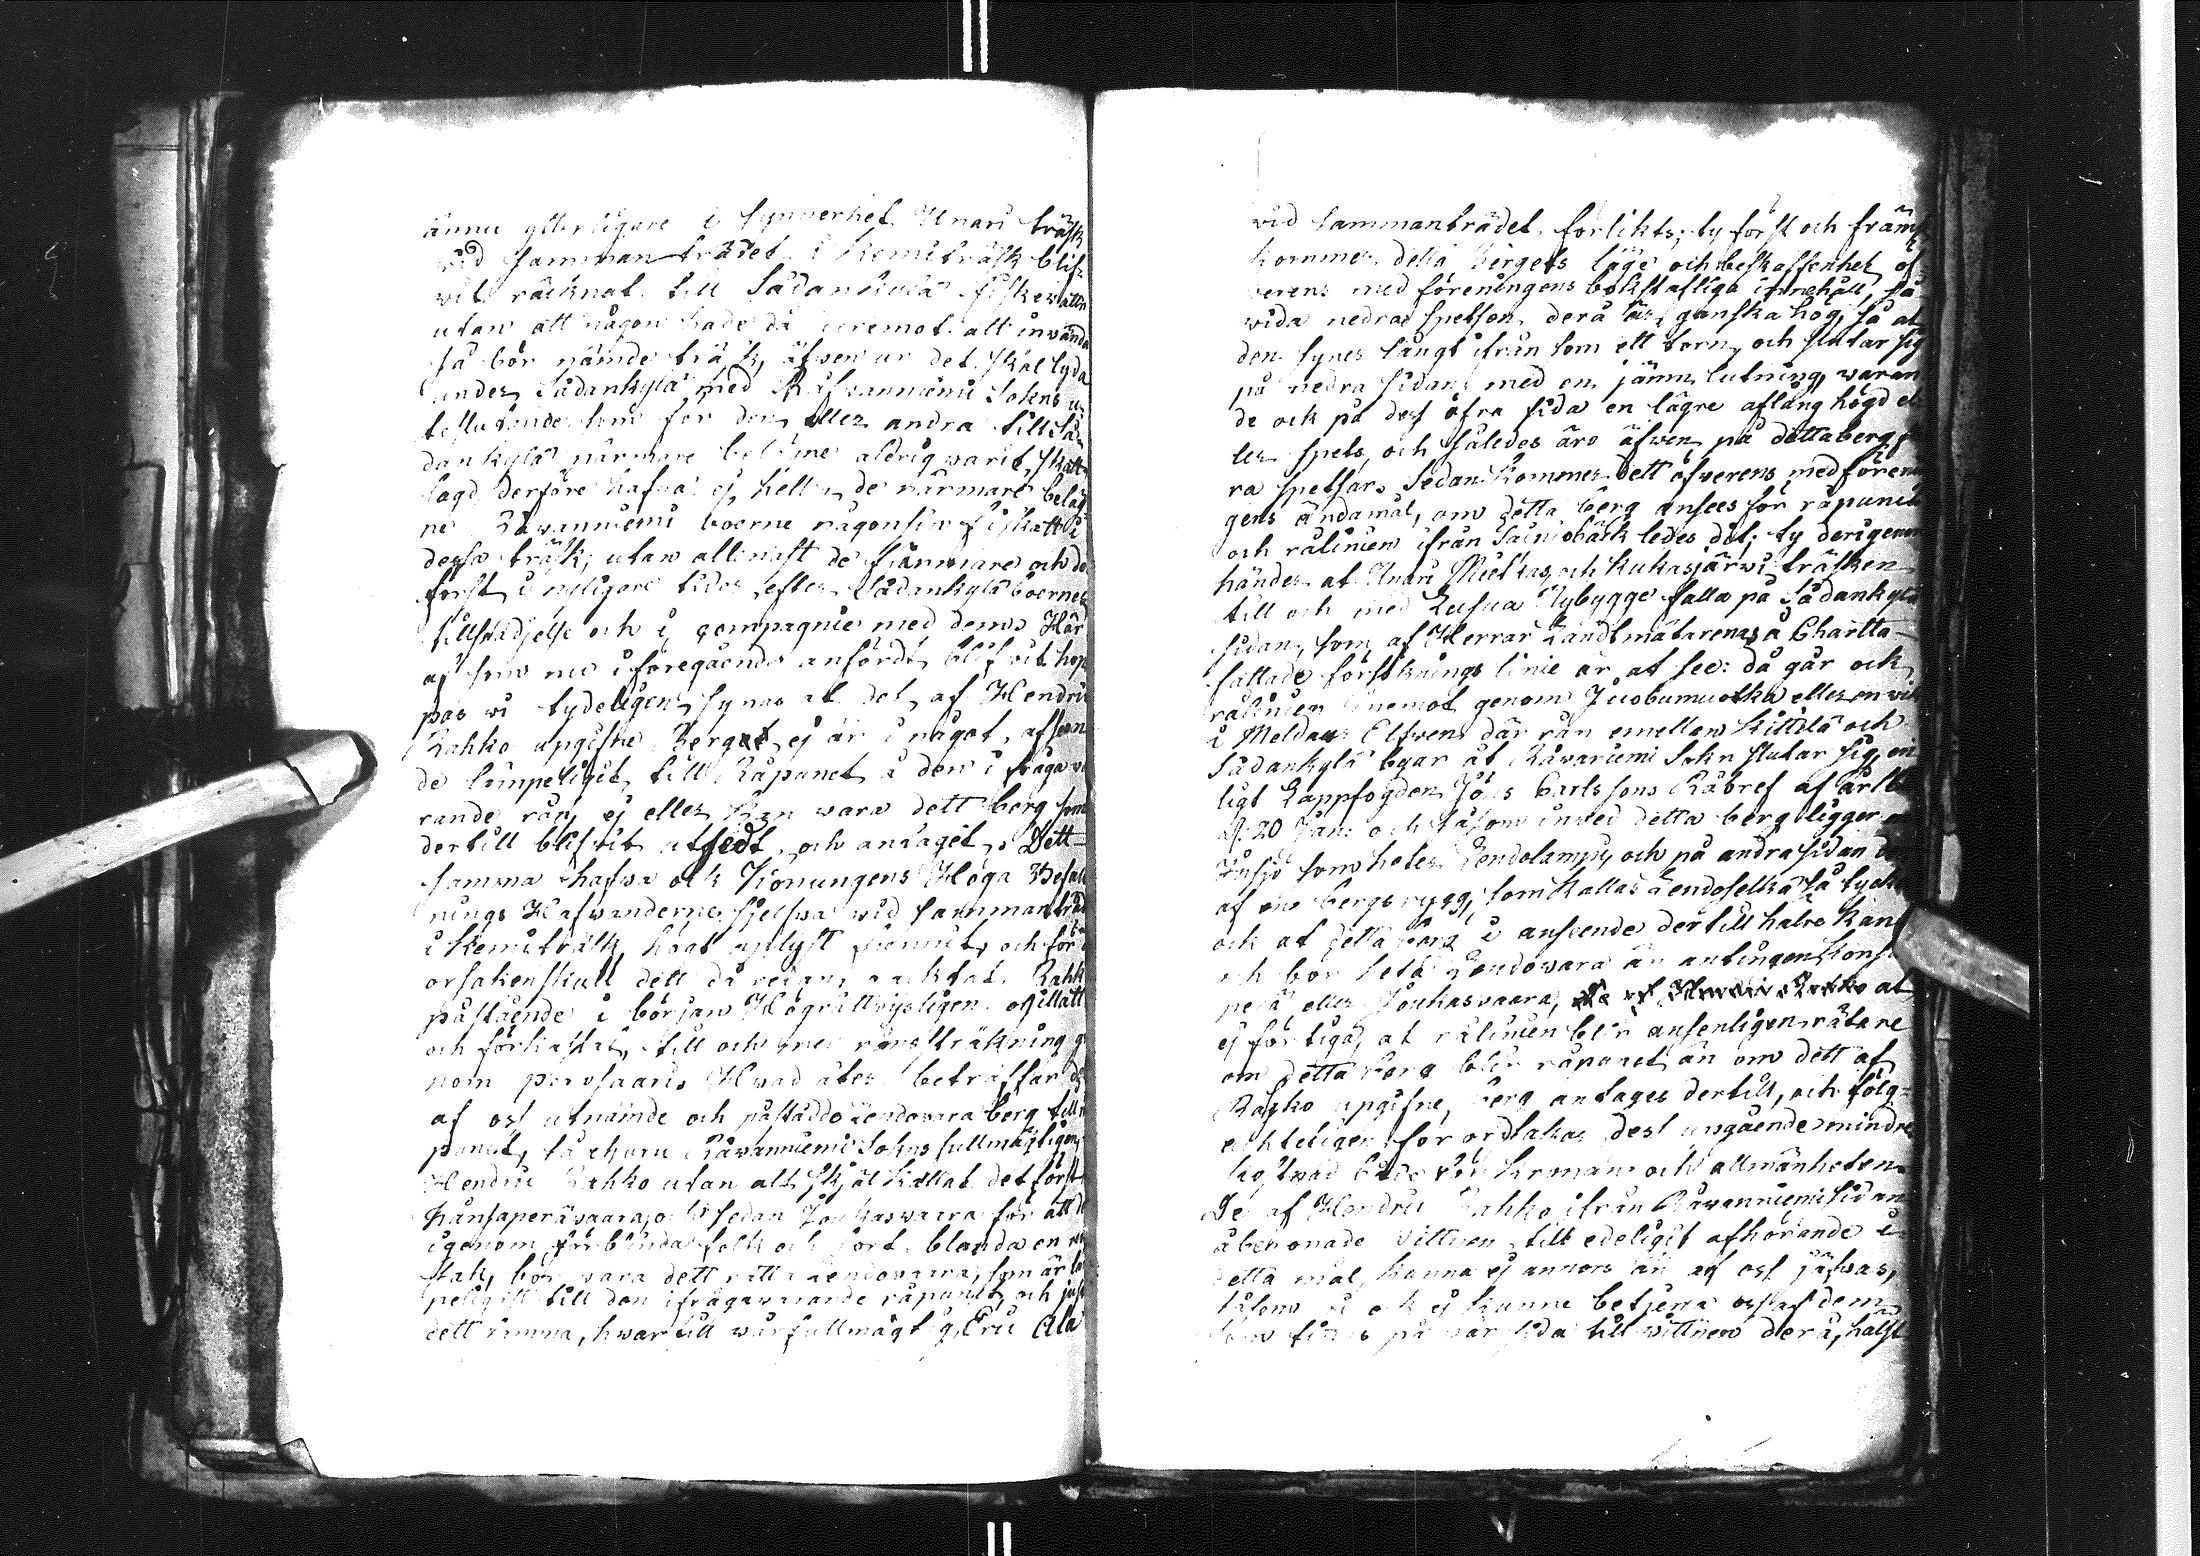 ännu ytterligare i synnerhet Unari träsk
wid sammanträdet i Kemiträsk blif-
vit räcknat till Sådankylä fiskewattn
utan att någon hade då deremot alt inwända
så bör nämde träsk, äfwen ur det skäl lyda
under Sådankylä med Råfwanniemi Sokns u-
teslutande som för den eller andra till Så-
dankylä närmare belägne aldrig warit skatt-
lagd derföre hafwa ej heller de närmare beläg
ne Råwanniemi boerne någonsin fiskatt i
dessa träsk; utan allenast de fiärmare och de
först i nyligare tider efter Sådankylä boernes
tillstädjelse och i compagnie med dem. Här
af som nu i föregående anfördt blifvit hop-
pas wi tydeligen synas at det af Hendric
Rahko upgifne Berget ej är i något afseen
de limpeligit till Råpunct i den i fråga va
rande rån, ej eller kan wara dett berg som
dertill blifvit utsedt, och antagit. Dett-
samma hafwa ock Konungens Höga Befall
nings Hafwanderne sjelfwa wid sammanträd
i Kemiträsk, högt uplyst funnit, och för
orsakenskull dett då redan Rahk
påstående i början Högrättvisligen ogillatt
och förkastat, till och med rånsträkning ge
nom porosaari. Hwad åter beträffar de
af oss utnämde och påstådde Lendowara berg till rå
punct, så ehuru Råwanniemi Sokns fullmägtigen
Hendric Rahko utan alt skjäl kallat det först
Känsaperäwaara, och sedan Joukaswaara för att d
igenom förblinda folk och bort blanda en
sak, bör wara dett rätta Lendowaara, som är lem
peligist till den ifrågawarande råpunct, och just
dett samma, hwartill wår fullmägtig Eric Ala
wid sammanträdet förlikts; ty först och främst
kommer detta Bergets läge och beskaffenhet öf-
verens med föreningens bokstafliga innehåll, så
wida nedra spetsen derå är ganska hög, så at
den synes långt ifrån som ett torn, och slutar sig
på nedra sidan med en jämn lutning, waran
de ock på dess öfra sida en lägre aflång högd el
ler spets, och således äro äfwen på detta berg
ra spetsar. Sedan kommer dett öfverens med förenin
gens ändamål, om detta berg ansees för råpunct
och rålinien ifrån Sainiobäck ledes dit; ty derigenom
händer at Unari Mieltas och Kukasjärwi träsken
till och med Lusua Nybygge falla på Sådankylä
sidan, som af Herrar Landtmätarenas å Chartta
fattade försöknings linie är at see: då går ock
rålinien änemot genom Jacobumuotka eller en vik
i Meldaus Elfwen där rån emellan Kittilä och
Sådankylä byar åt Råvaniemi Sokn slutar sig, en
ligt Lappfogden Jöns Carlssons Råbref af år 16
d. 20 Jan: och såsom inwed detta berg ligger en
Insjö som hetes Lendolampi, och på andra sidan der
af en bergsrygg, som kallas Lendoselkä så tyck
ock at detta berg i anseende dertill halre kan
och bör heta Lendowara än antingen Konsa
perä, eller Joukasvaara, at
ej förtiga, at rålinien blir ansenligen rätare
om detta berg blir råpunct än om dett af
Rahko upgifne, berg antages dertill, och fölg-
achteligen förordsakar dess upgående mindre
kostnad både för Kronan och allmänheten.
De af Hendric Rahko ifrån Råvanniemi sidan
åberopade vittnen till edeligit afhörande i
detta mål, kunna ej annors än af oss jäfwas,
såsom wi ock ej kunne betjena oss af dem
som finnes på wår sida till wittnen derå, hälst